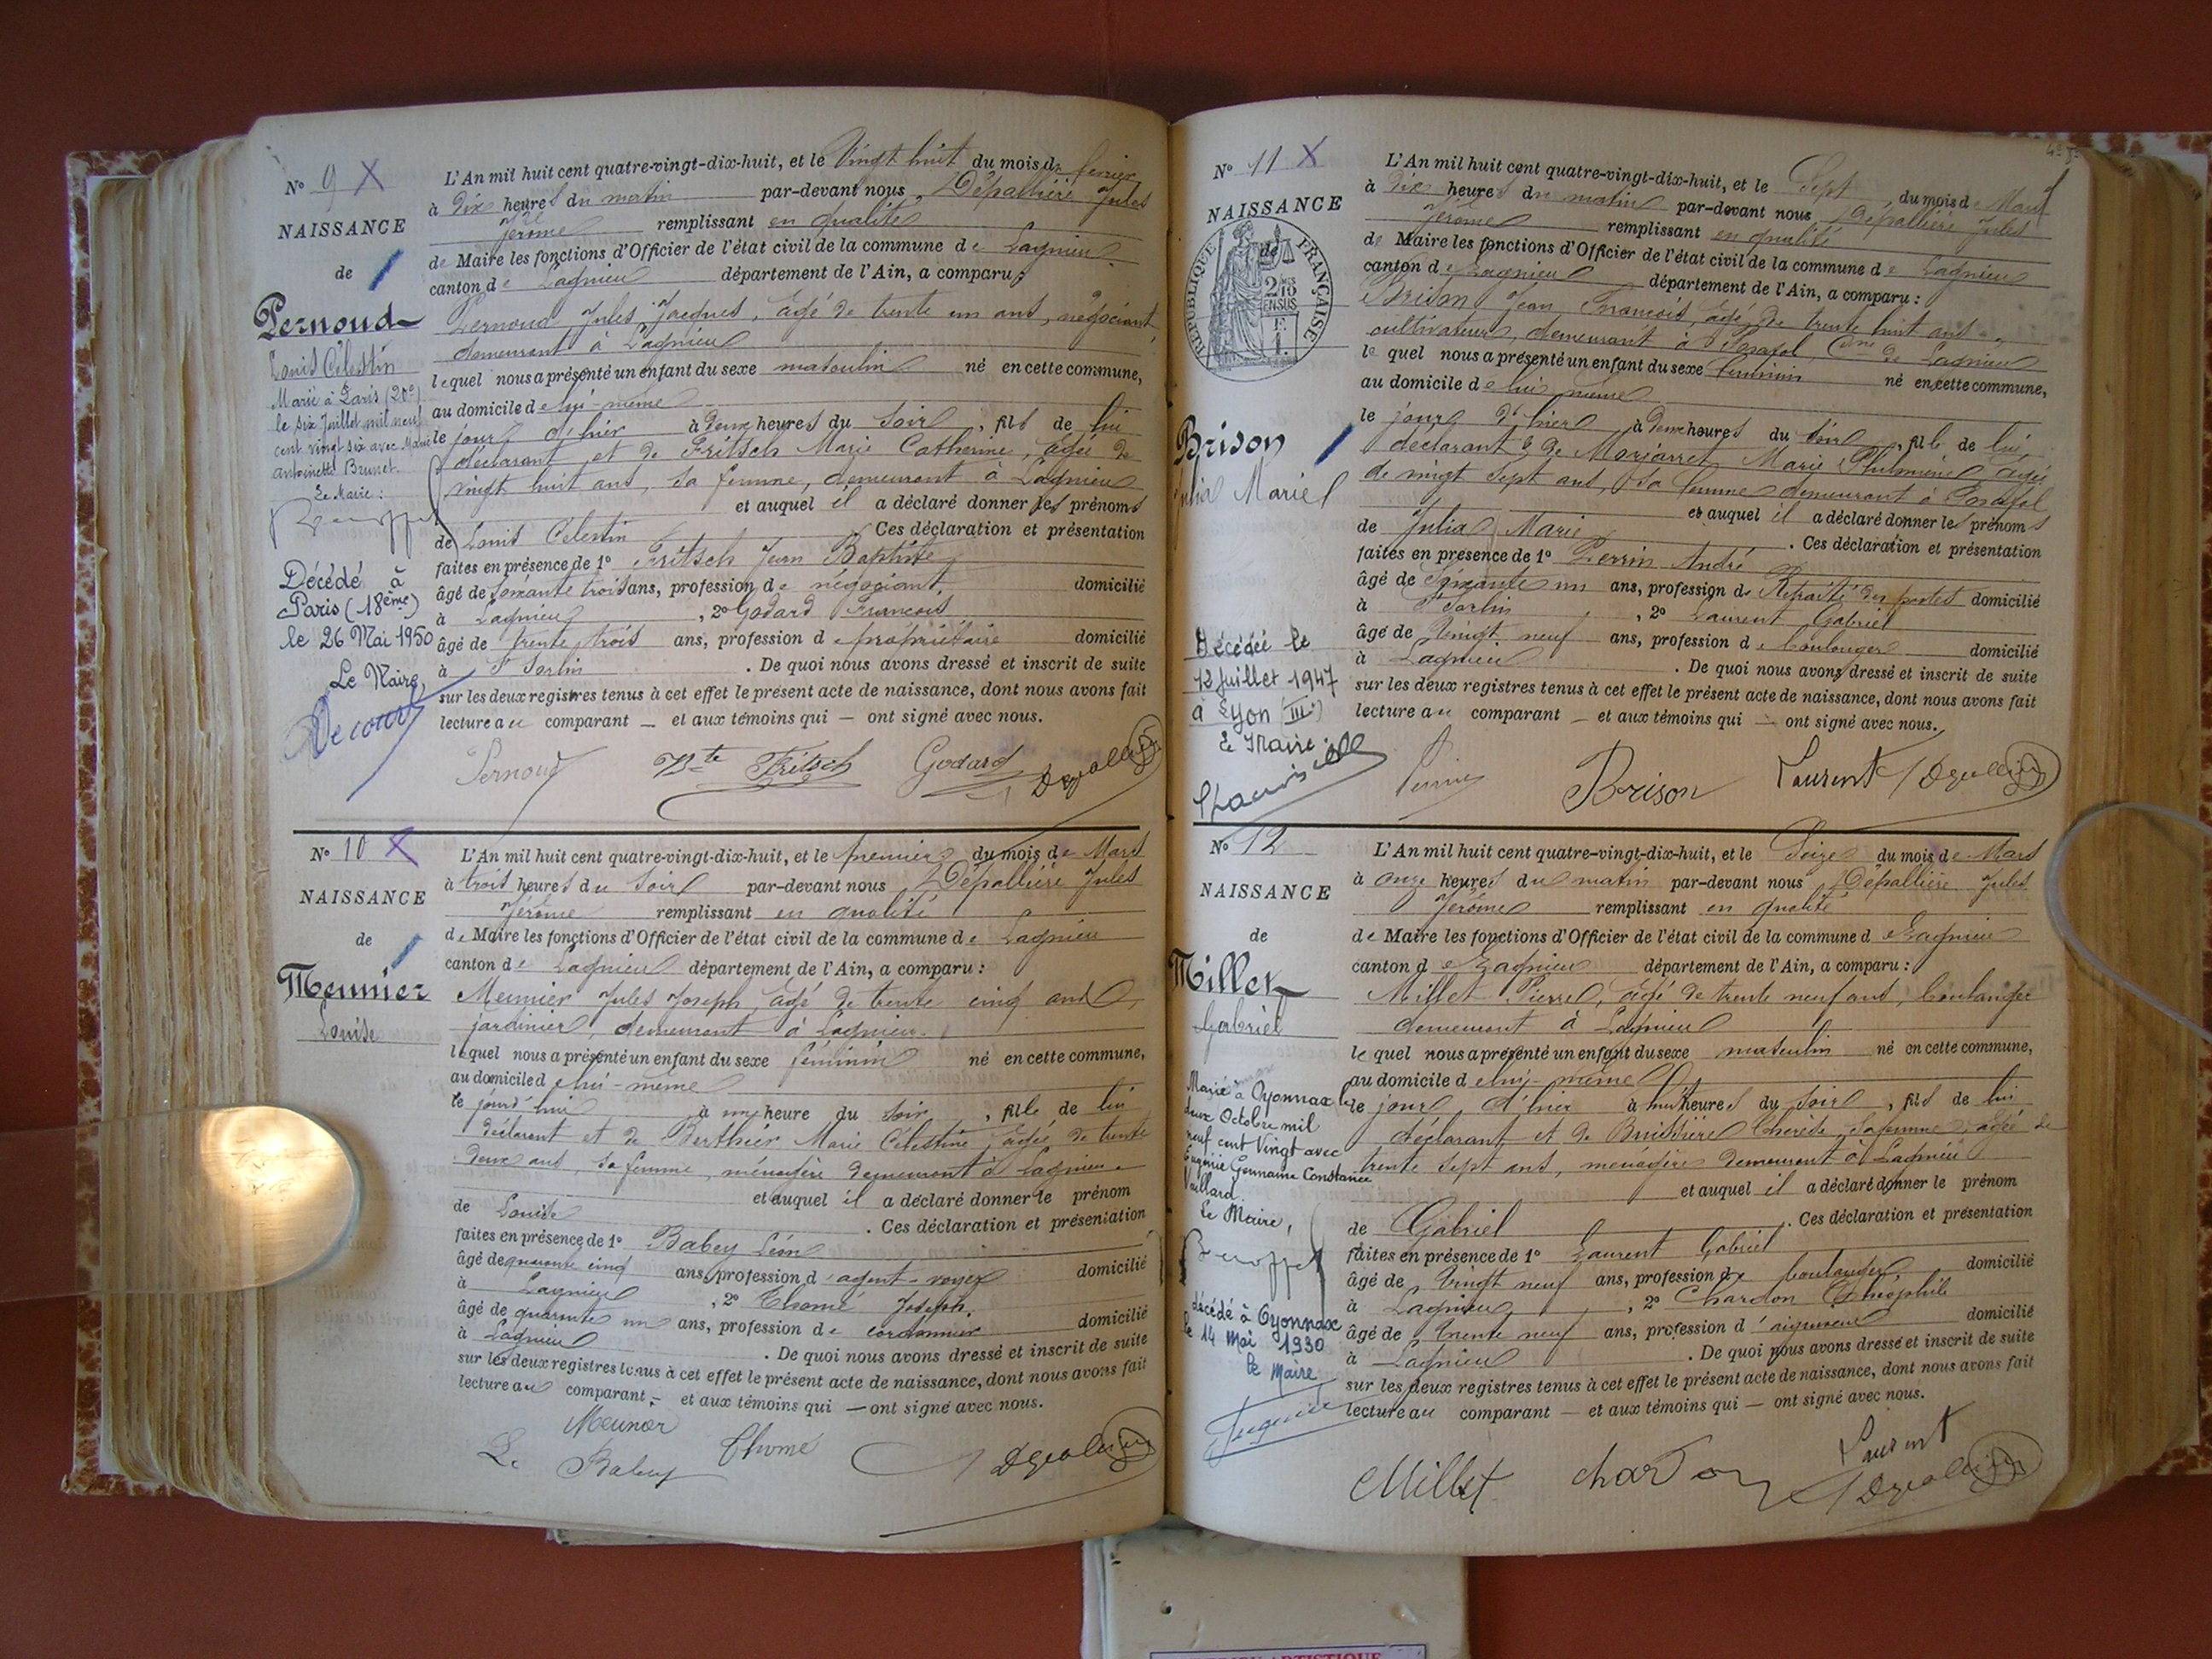 N° 9 X
NAISSANCE
de
Pernoud
Louis Célestin
Marié à Paris (20e)
le six Juillet mil neuf
cent vingt six avec Marie
antoinette Brunet.
Le Maire :
Décédé à
Paris (18ème)
le 26 Mai 1950
Le Maire,
L'An mil huit cent quatre-vingt-dix-huit, et le Vingt huit du mois de février
à Dix heures du matin par-devant nous Dépallière Jules
Jérôme remplissant en qualité
de Maire les fonctions d'Officier de l'état civil de la commune de Lagnieu
canton de Lagnieu département de l'Ain, a comparu :
Pernoud Jules Jacques, âgé de trente un ans, négociant,
demeurant à Lagnieu
lequel nous a présenté un enfant du sexe masculin né en cette commune,
au domicile de lui-même
le jour d'hier à deux heures du soir, fils de lui
déclarant et de Fritsch Marie Catherine, âgée de
vingt huit ans, sa femme, demeurant à Lagnieu
et auquel il a déclaré donner les prénoms
de Louis Célestin Ces déclaration et présentation
faites en présence de 1° Fritsch Jean Baptiste
âgé de soixante trois ans, profession de négociant, domicilié
à Lagnieu, 2° Godard François
âgé de trente trois ans, profession de propriétaire domicilié
à St Sorlin . De quoi nous avons dressé et inscrit de suite
sur les deux registres tenus à cet effet le présent acte de naissance, dont nous avons fait
lecture au comparant — et aux témoins qui — ont signé avec nous.
Pernoud Bte Fritsch Godard
N° 10 X
NAISSANCE
de
Meunier
Louise
L'An mil huit cent quatre-vingt-dix-huit, et le premier du mois de Mars
à trois heures du soir par-devant nous Dépallière Jules
Jérôme remplissant en qualité
de Maire les fonctions d'Officier de l'état civil de la commune de Lagnieu
canton de Lagnieu département de l'Ain, a comparu :
Meunier Jules Joseph, âgé de trente cinq ans,
jardinier, demeurant à Lagnieu.
lequel nous a présenté un enfant du sexe féminin né en cette commune,
au domicile de lui-même
le jourd'hui à un heure du soir, fille de lui
déclarant et de Berthier Marie Célestine âgée de trente
deux ans, sa femme, ménagère demeurant à Lagnieu.
et auquel il a déclaré donner le prénom
de Louise . Ces déclaration et présentation
faites en présence de 1° Babey Léon
âgé de quarante cinq ans, profession d'agent-voyer domicilié
à Lagnieu, 2° Thomé Joseph,
âgé de quarante un ans, profession de cordonnier domicilié
à Lagnieu . De quoi nous avons dressé et inscrit de suite
sur les deux registres tenus à cet effet le présent acte de naissance, dont nous avons fait
lecture au comparant — et aux témoins qui — ont signé avec nous.
Meunier
L. Babey Thomé
N° 11 X
NAISSANCE
de
RÉPUBLIQUE FRANÇAISE
Brison
Julia Marie
Décédée le
12 juillet 1947
à Lyon (IIIe)
Le Maire.
L'An mil huit cent quatre-vingt-dix-huit, et le Sept du mois de Mars
à Dix heures du matin par-devant nous Dépallière Jules
Jérôme remplissant en qualité
de Maire les fonctions d'Officier de l'état civil de la commune de Lagnieu
canton de Lagnieu département de l'Ain, a comparu :
Brison Jean François âgé de trente huit ans,
cultivateur, demeurant à Posafol, Cne de Lagnieu
lequel nous a présenté un enfant du sexe féminin né en cette commune,
au domicile de lui même
le jour d'hier à deux heures du soir, fille de lui,
déclarant & de Morjarret Marie Philomène âgée
de vingt sept ans, sa femme demeurant à Posafol
et auquel il a déclaré donner les prénoms
de Julia Marie . Ces déclaration et présentation
faites en présence de 1° Perrin André
âgé de Soixante un ans, profession de Retraité des postes domicilié
à St Sorlin, 2° Laurent Gabriel
âgé de Vingt neuf ans, profession de boulanger domicilié
à Lagnieu . De quoi nous avons dressé et inscrit de suite
sur les deux registres tenus à cet effet le présent acte de naissance, dont nous avons fait
lecture au comparant — et aux témoins qui — ont signé avec nous.
Perrin Brison Laurent
N° 12
NAISSANCE
de
Millet
Gabriel
Marié à Oyonnax le
deux Octobre mil
neuf cent Vingt avec
Eugénie Germaine Constance
Vaillard.
Le Maire,
décédé à Oyonnax
le 14 Mai 1930
Le Maire
L'An mil huit cent quatre-vingt-dix-huit, et le Seize du mois de Mars
à onze heures du matin par-devant nous Dépallière Jules
Jérôme remplissant en qualité
de Maire les fonctions d'Officier de l'état civil de la commune de Lagnieu
canton de Lagnieu département de l'Ain, a comparu :
Millet Pierre, âgé de trente neuf ans, boulanger
demeurant à Lagnieu
lequel nous a présenté un enfant du sexe masculin né en cette commune,
au domicile de lui-même
le jour d'hier à huit heures du soir, fils de lui
déclarant et de Buissière Thérèse, sa femme, âgée de
trente sept ans, ménagère demeurant à Lagnieu
et auquel il a déclaré donner le prénom
de Gabriel . Ces déclaration et présentation
faites en présence de 1° Laurent Gabriel
âgé de Vingt neuf ans, profession de boulanger domicilié
à Lagnieu, 2° Chardon Théophile
âgé de trente neuf ans, profession d' domicilié
à Lagnieu . De quoi nous avons dressé et inscrit de suite
sur les deux registres tenus à cet effet le présent acte de naissance, dont nous avons fait
lecture au comparant — et aux témoins qui — ont signé avec nous.
Laurent
Millet Chardon